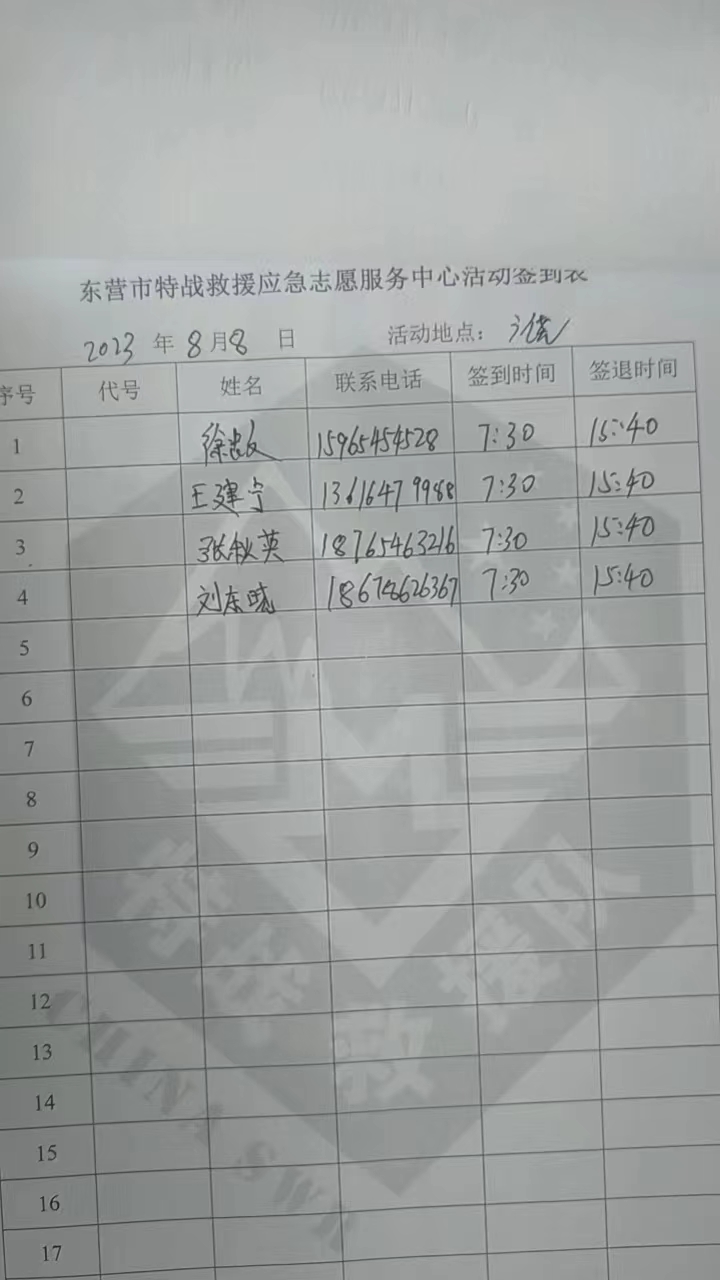 东营市特战救援应急志愿服务中心活动签到表
2023 年 8 月 8 日 活动地点:
序号 代号 姓名 联系电话 签到时间 签退时间
1 徐 15965454528 7:30 15:40
2 王建宁 13616479988 7:30 15:40
3 张秋英 18765463216 7:30 15:40
4 刘东晓 18678626367 7:30 15:40
5
6
7
8
9
10
11
12
13
14
15
16
17
特战救援队
CHINA SWR